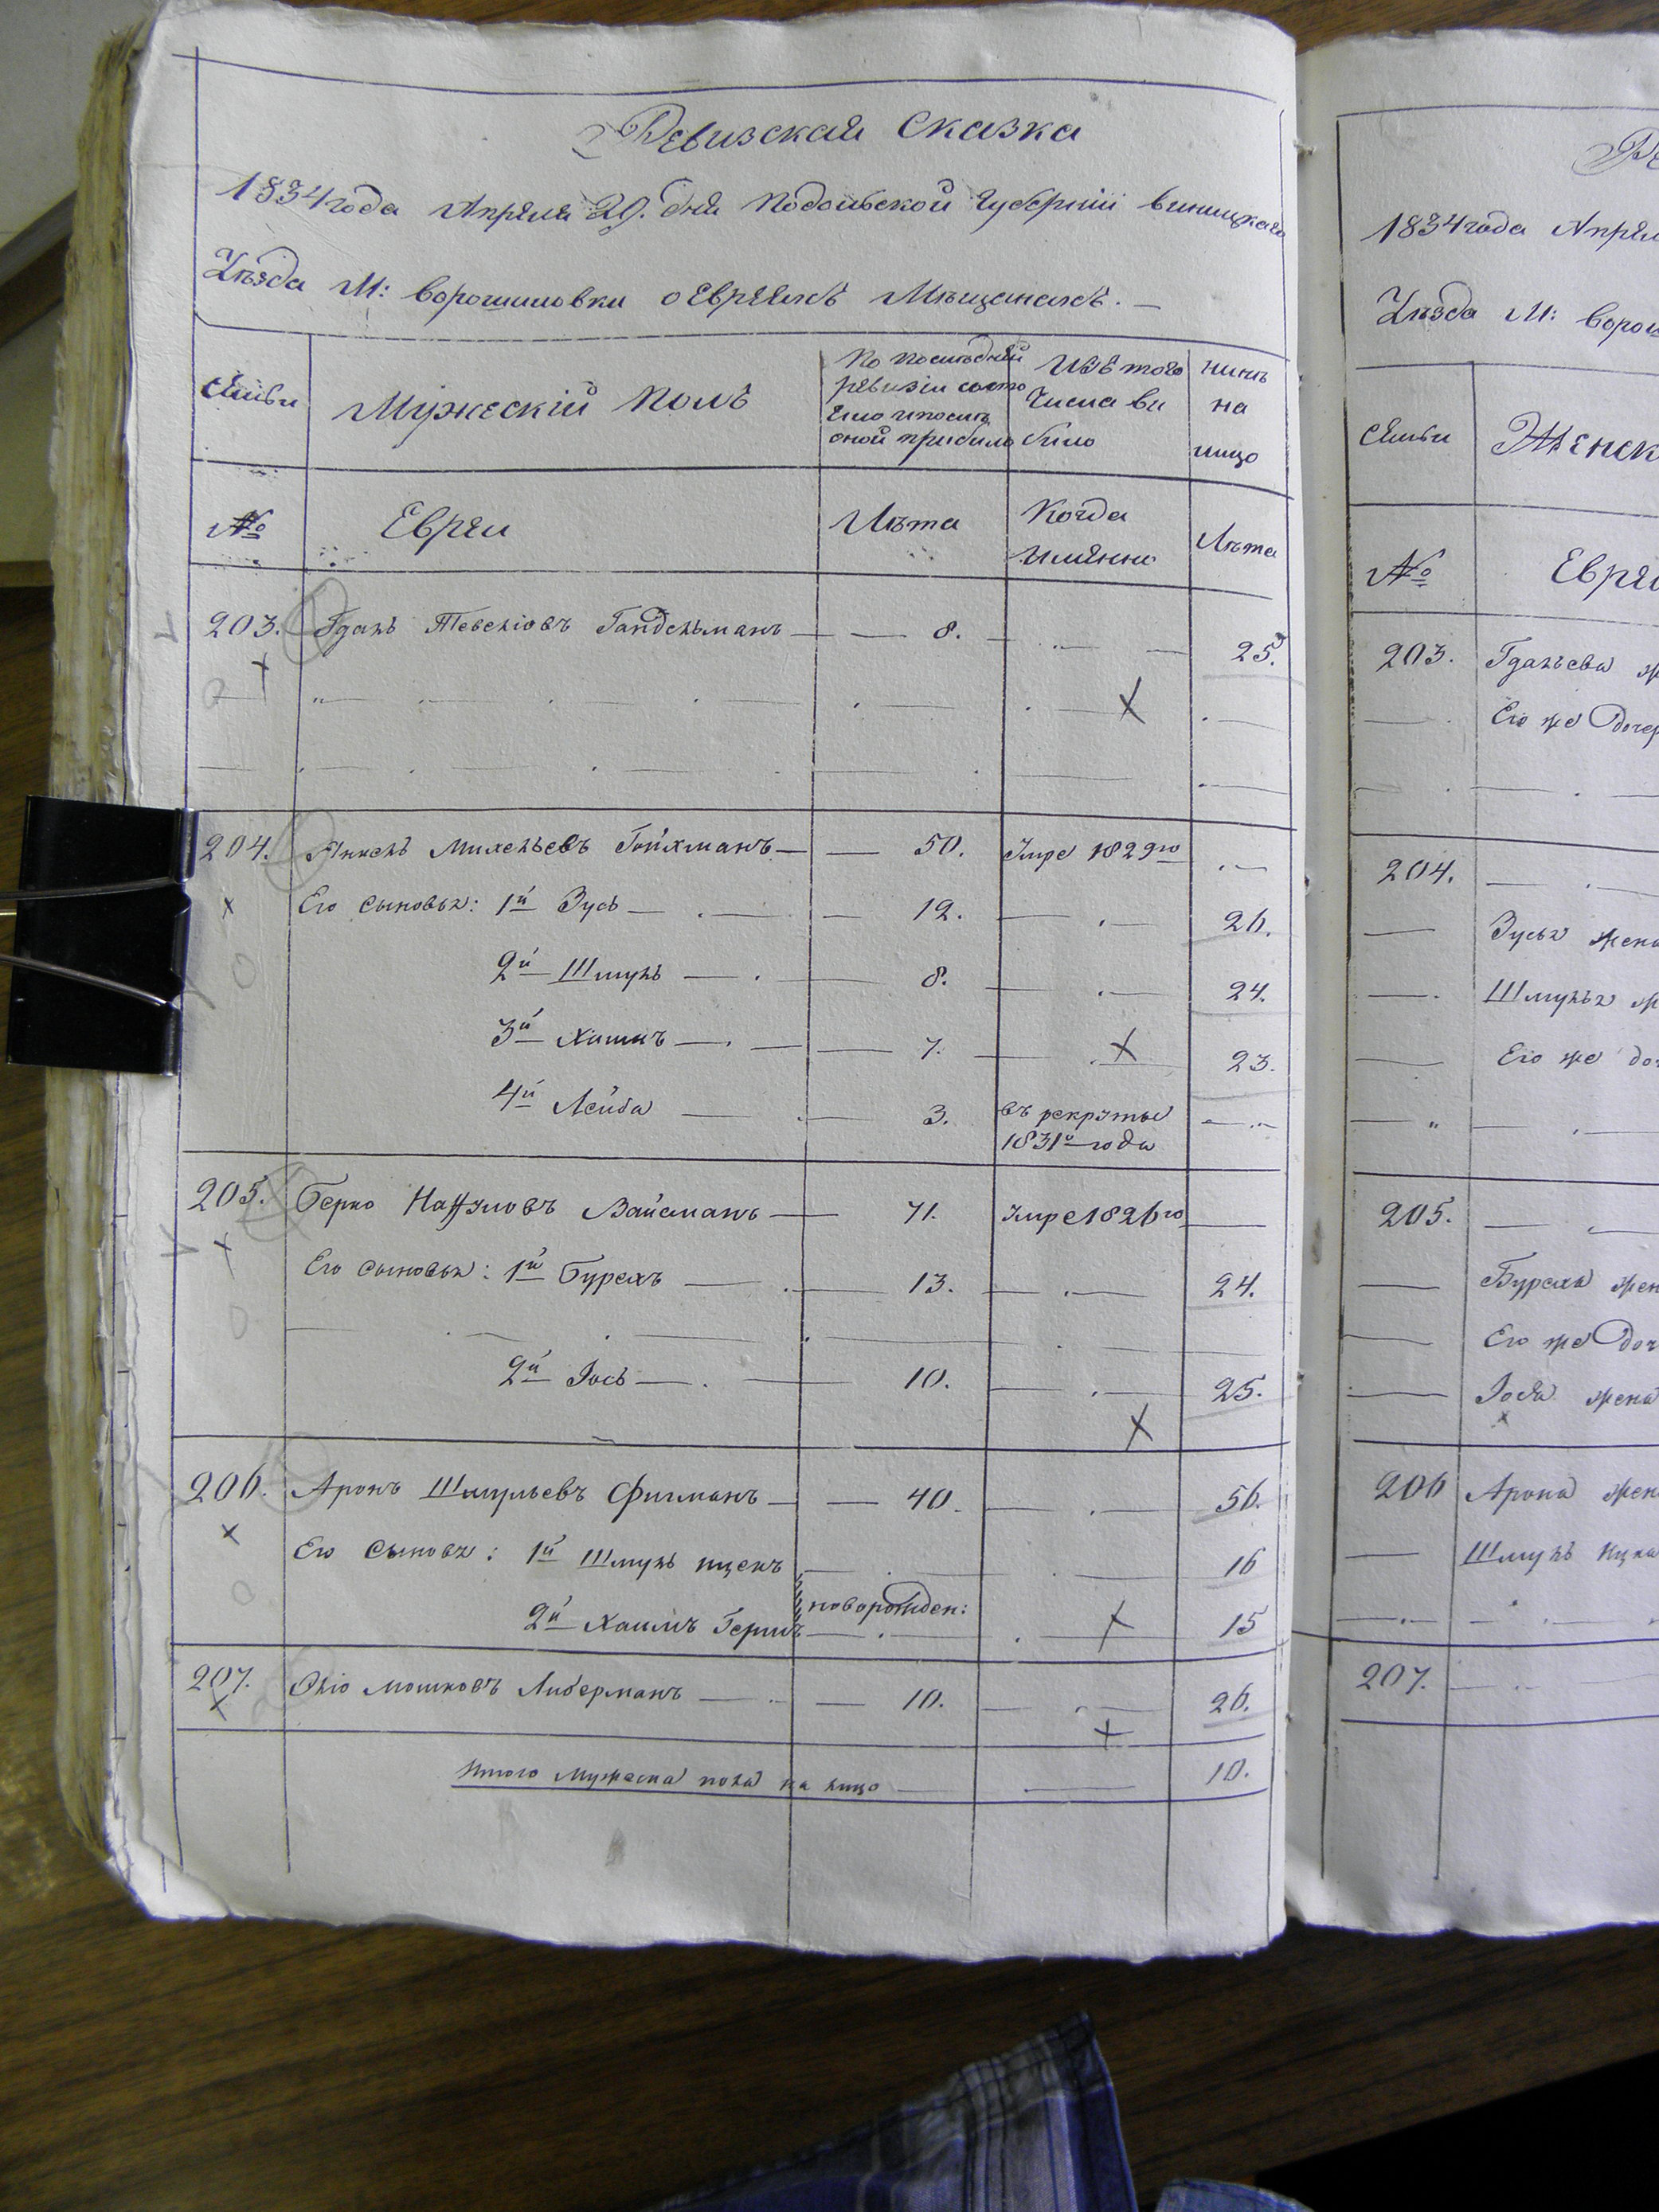 Ревизская Сказка
1834 года Апреля 29. дня Подольской Губернии Виницкаго
Уѣзда М: Ворошиловки о Евреяхъ Мѣщанахъ. —
Семьи
Мужескій Полъ
По последней
ревизіи состо
яло и после
оной прибыло
Изъ того
Числа вы
было
нынѣ
на
лицо
№
Евреи
Лѣта
Когда
Имянно
Лѣта
203. Гдаль Тевеліовъ Гандельманъ — 8. — 25.
204. Михельевъ Гойхманъ — 50. Умре 1829го
Его сыновья: 1й Зусь — 12. — 26.
2й Шмуль — 8. — 24.
3й Хаимъ — 7. — 23.
4й Лейба — 3. въ рекруты
1831го года
205. Берко Вайсманъ — 71. Умре 1826го
Его сыновья: 1й Бурехъ — 13. — 24.
2й Іось — 10. — 25.
206. Аронъ Шмульевъ Фишманъ — 40. — 56.
Его Сыновья: 1й Шмуль Ицекъ — 16
2й Хаимъ Гершъ новорожден: 15
207. Мошковъ Либерманъ — 10. — 26.
Итого Мужеска пола на лицо — 10.
1834 года Апрел
Уѣзда М: Ворош
Семьи
Женск
№
Евреи
203. Гдальева ж
Его же дочер
204.
Зусья жена
Шмулья ж
Его же до
205.
Буреха жен
Его же доч
Іося жена
206 Арона жен
Шмуль Ицка
207.